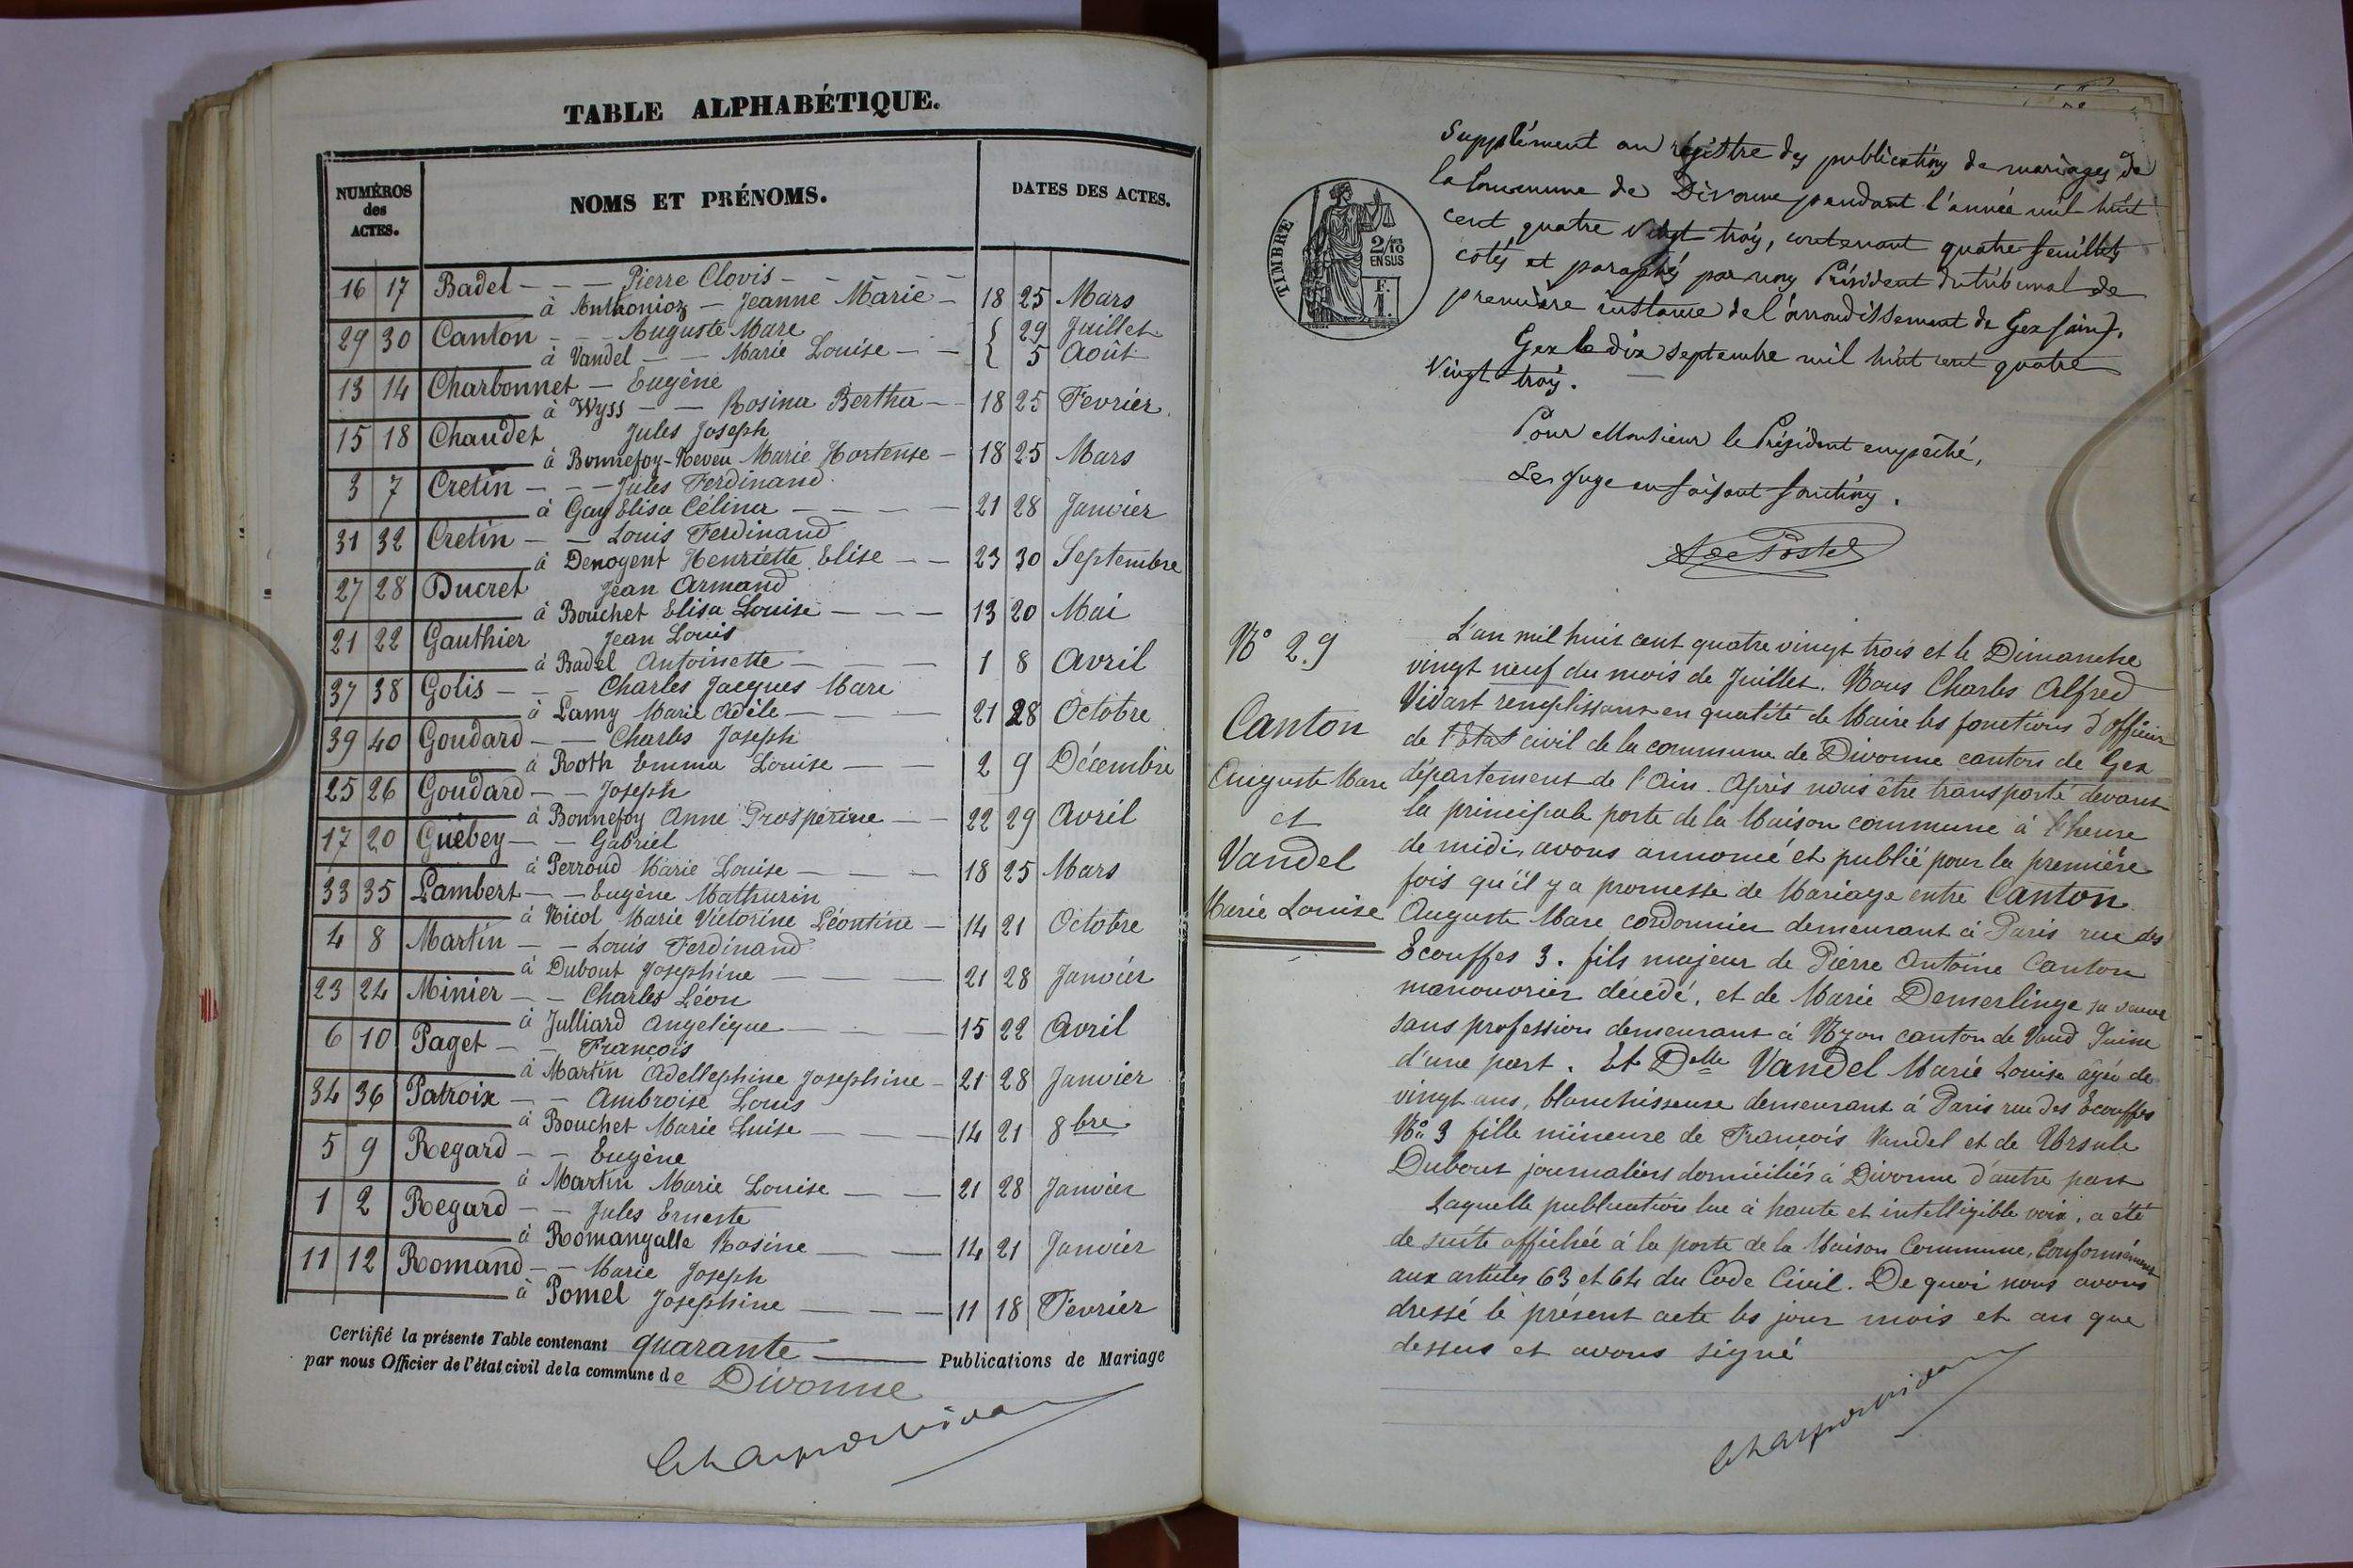 TABLE ALPHABÉTIQUE.
NUMÉROS
des
ACTES.
NOMS ET PRÉNOMS.
DATES DES ACTES.
16 17 Badel - - - Pierre Clovis - -
à Anthonioz - Jeanne Marie - 18 25 Mars
29 30 Canton - - - Auguste Marc { 29 Juillet
à Vandel - - Marie Louise - - { 5 Août
13 14 Charbonnet - Eugène
à Wyss - - Rosina Bertha - - 18 25 Fevrier
15 18 Chaudet Jules Joseph
à Bonnefoy-Neveu Marie Hortense - 18 25 Mars
3 7 Cretin - - - Jules Ferdinand
à Gay Elisa Célina - - - - 21 28 Janvier
31 32 Cretin - - Louis Ferdinand
à Denogent Henriette Elise - - 23 30 Septembre
27 28 Ducret Jean Armand
à Bouchet Elisa Louise - - - 13 20 Mai
21 22 Gauthier Jean Louis
à Badel Antoinette - - - 1 8 Avril
37 38 Golis - - - Charles Jacques Marc
à Lamy Marie Adèle - - - 21 28 Octobre
39 40 Goudard - - Charles Joseph
à Roth Emma Louise - - 2 9 Décembre
25 26 Goudard - - Joseph
à Bonnefoy Anne Prospérine - - 22 29 Avril
17 20 Guebey - - Gabriel
à Perroud Marie Louise - - - 18 25 Mars
33 35 Lambert - - Eugène Mathurin
à Nicol Marie Victorine Léontine - 14 21 Octobre
4 8 Martin - - Louis Ferdinand
à Dubout Josephine - - - 21 28 Janvier
23 24 Minier - - Charles Léon
à Julliard Angelique - - - 15 22 Avril
6 10 Paget - - François
à Martin Adellephine Josephine - 21 28 Janvier
34 36 Patroix - - Ambroise Louis
à Bouchet Marie Luise - - - 14 21 8bre
5 9 Regard - - Eugène
à Martin Marie Louise - - 21 28 Janvier
1 2 Regard - - Jules Erneste
à Romangalle Rosine - - 14 21 Janvier
11 12 Romand - - Marie Joseph
à Pomel Josephine - - - 11 18 Fevrier
Certifié la présente Table contenant quarante Publications de Mariage
par nous Officier de l'état civil de la commune de Divonne
Supplément au registre des publications de mariages de
la Commune de Divonne pendant l'année mil huit
cent quatre vingt trois, contenant quatre feuillets
cotés et paraphés par nous Président du tribunal de
première instance de l'arrondissement de Gex (ain).
Gex le dix septembre mil huit cent quatre
vingt trois.
Pour Monsieur le Président empêché,
Le Juge en faisant fonctions.
TIMBRE
2/10
EN SUS
F.
1.
N° 29
Canton
Auguste Marc
et
Vandel
Marie Louise
L'an mil huit cent quatre vingt trois et le Dimanche
vingt neuf du mois de Juillet. Nous Charles Alfred
Vidart remplissant en qualité de Maire les fonctions d'officier
de l'Etat civil de la commune de Divonne canton de Gex
département de l'Ain. Après nous être transporté devant
la principale porte de la Maison commune à l'heure
de midi, avons annoncé et publié pour la première
fois qu'il y a promesse de Mariage entre Canton
Auguste Marc cordonnier demeurant à Paris rue des
Ecouffes 3. fils majeur de Pierre Antoine Canton
manouvrier décédé, et de Marie Demerlinge sa veuve
sans profession demeurant à Nyon canton de Vaud Suisse
d'une part. Et Delle Vandel Marie Louise agée de
vingt ans, blanchisseuse demeurant à Paris rue des Ecouffes
N° 3 fille mineure de François Vandel et de Ursule
Dubout journaliers domiciliés à Divonne d'autre part
Laquelle publication lue à haute et intelligible voix, a été
de suite affichée à la porte de la Maison Commune, Conformément
aux articles 63 et 64 du Code Civil. De quoi nous avons
dressé le présent acte les jour mois et an que
dessus et avons signé